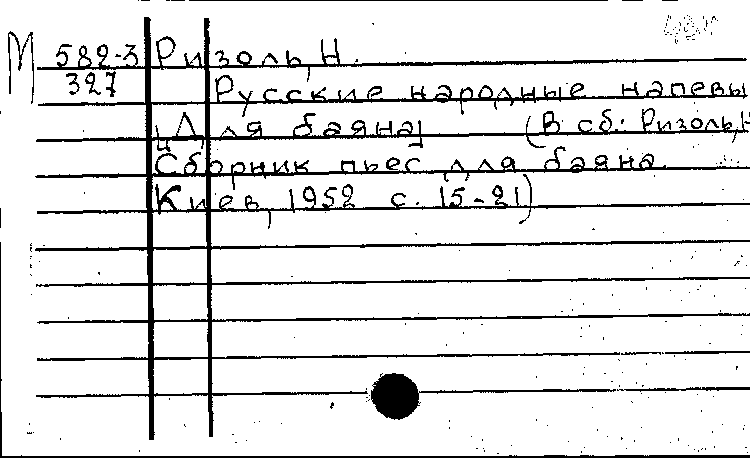 М 582-3 Ризоль, Н.
327 Русские народные напевы
[Для баяна] (В сб.: Ризоль, Н
Сборник пьес для баяна.
Киев, 1952 с. 15-21)